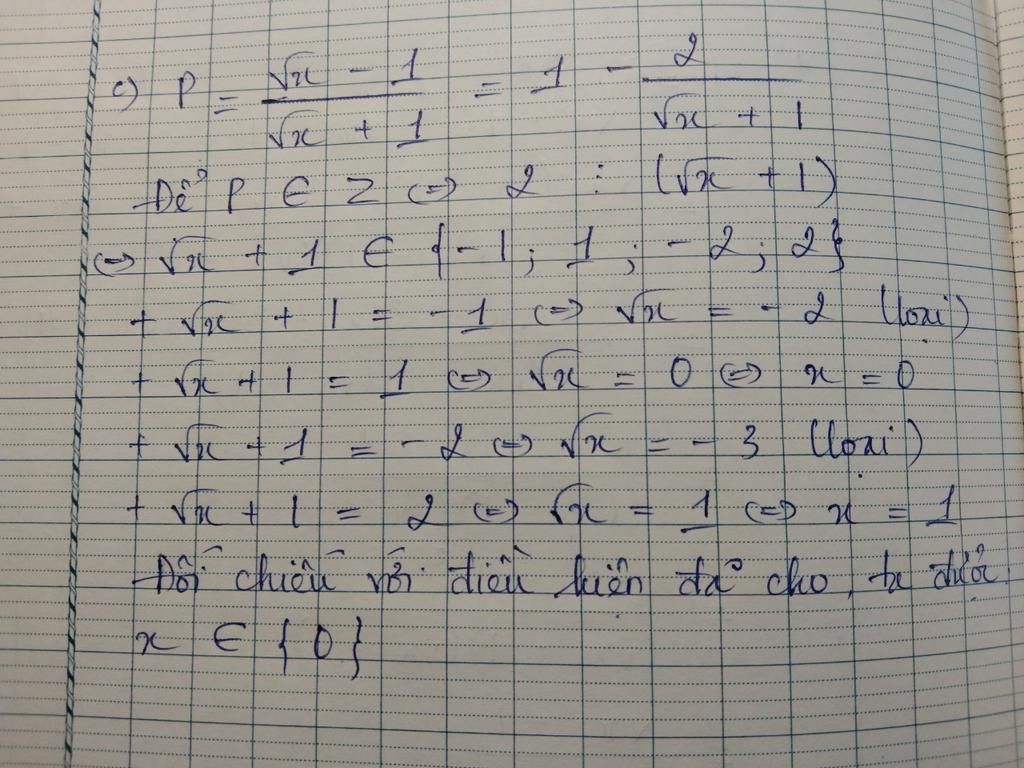 c) P = \frac{\sqrt{x} - 1}{\sqrt{x} + 1} = 1 - \frac{2}{\sqrt{x} + 1}
Để P ∈ Z ⇔ 2 ⋮ (√x + 1)
⇔ √x + 1 ∈ {-1; 1; -2; 2}
+ √x + 1 = -1 ⇔ √x = -2 (loại)
+ √x + 1 = 1 ⇔ √x = 0 ⇔ x = 0
+ √x + 1 = -2 ⇔ √x = -3 (loại)
+ √x + 1 = 2 ⇔ √x = 1 ⇔ x = 1
Đối chiếu với điều kiện đã cho, ta được
x ∈ {0}